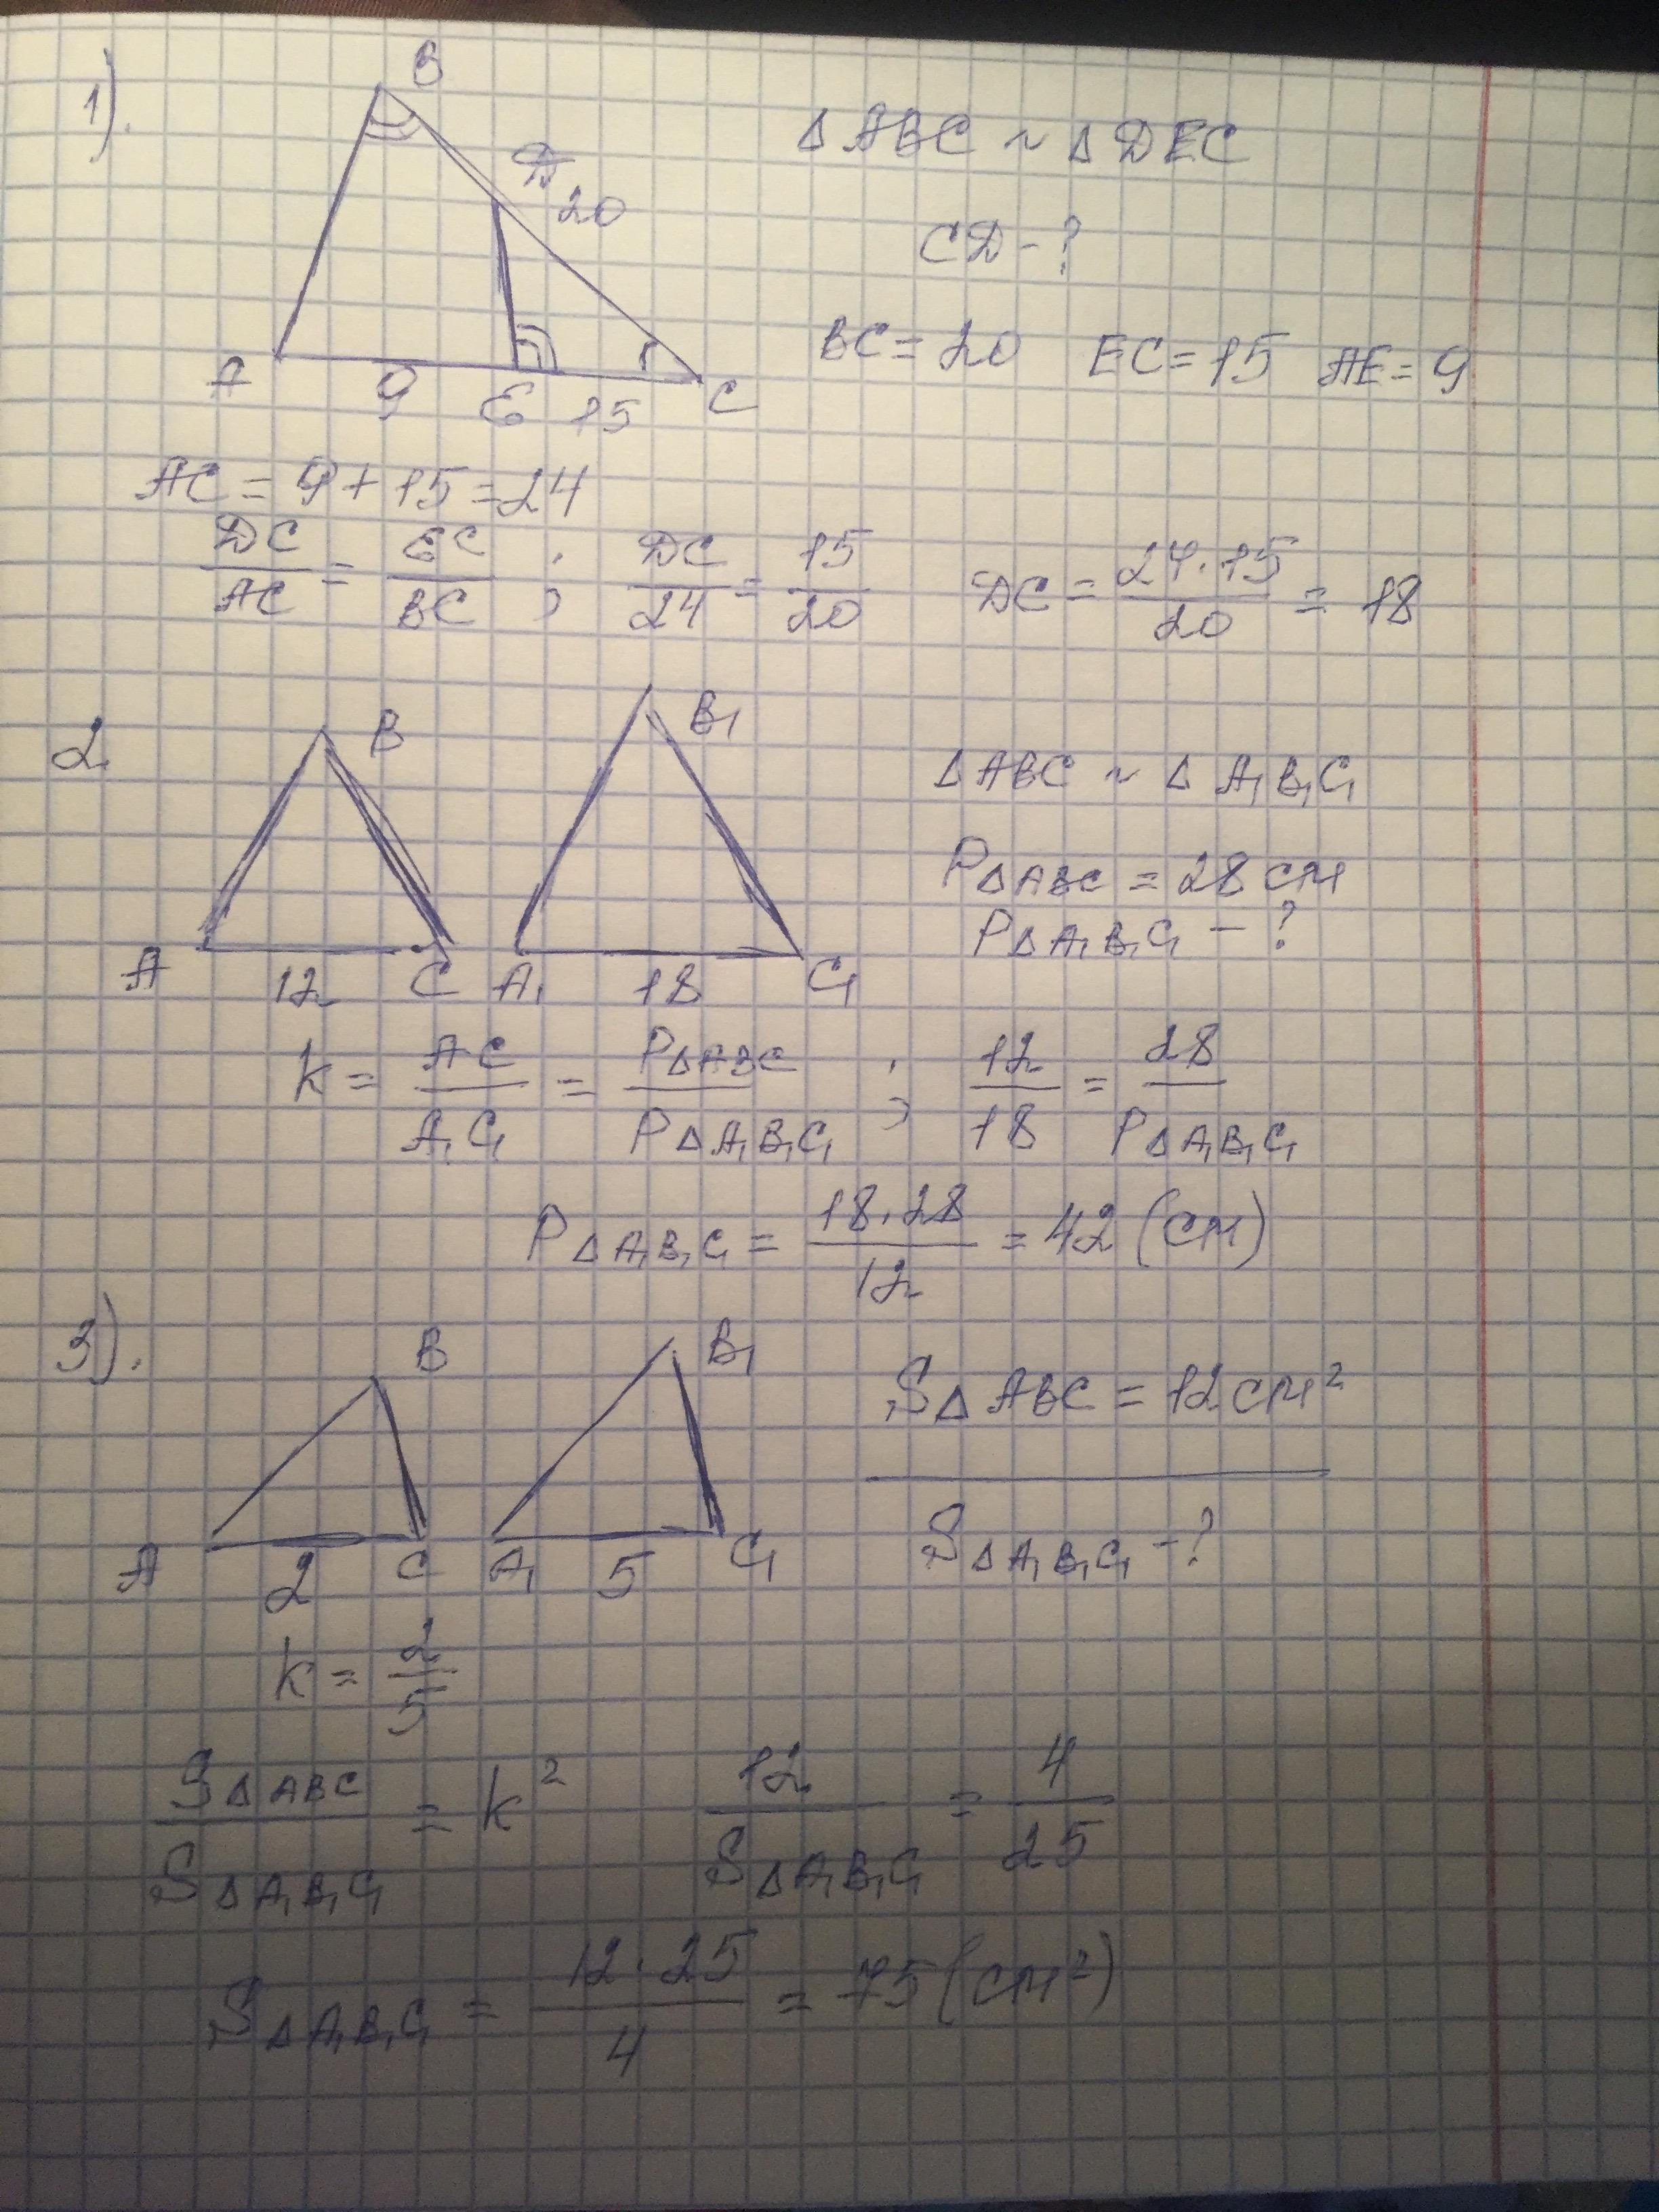 1).
B
Д
20
A
9
E
15
C
Δ ABC ~ Δ DEC
CД - ?
BC = 20 EC = 15 AE = 9
AC = 9 + 15 = 24
DC/AC = EC/BC ; DC/24 = 15/20 DC = 24·15/20 = 18
2.
B
A
12
C
B₁
A₁
18
C₁
Δ ABC ~ Δ A₁B₁C₁
PΔABC = 28 см
PΔA₁B₁C₁ - ?
k = AC/A₁C₁ = PΔABC/PΔA₁B₁C₁ ; 12/18 = 28/PΔA₁B₁C₁
PΔA₁B₁C₁ = 18·28/12 = 42 (см)
3).
B
A
2
C
B₁
A₁
5
C₁
SΔABC = 12 см²
SΔA₁B₁C₁ - ?
k = 2/5
SΔABC/SΔA₁B₁C₁ = k² 12/SΔA₁B₁C₁ = 4/25
SΔA₁B₁C₁ = 12·25/4 = 75 (см²)